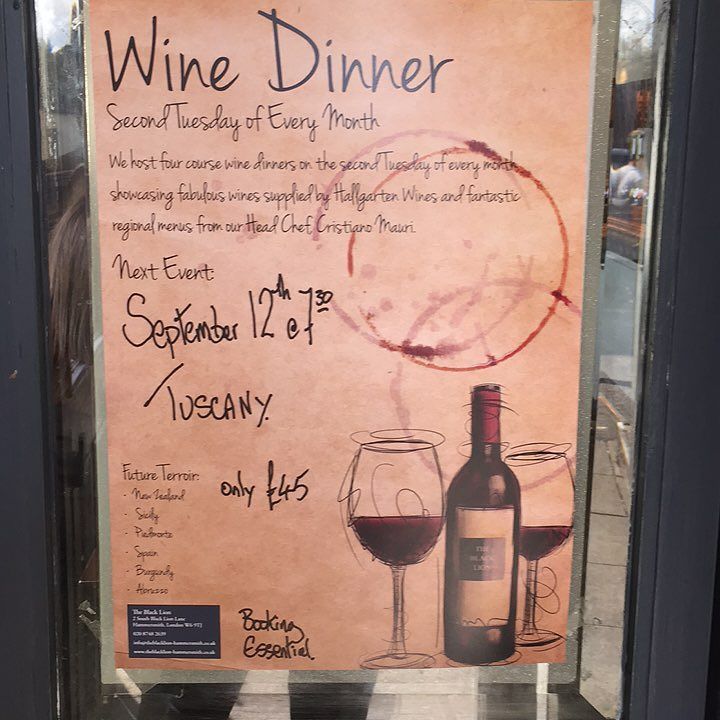 Wine Dinner
Second Tuesday of Every Month
We host four course wine dinners on the second Tuesday of every month,
showcasing fabulous wines supplied by Hallgarten Wines and fantastic
regional menus from our Head Chef, Cristiano Mauri.
Next Event:
September 12th @ 7 30
TUSCANY.
Future Terroir:
only £45
- New Zealand
- Sicily
- Piedmonte
- Spain
- Burgundy
- Abruzzo
The Black Lion
2 South Black Lion Lane
Hammersmith, London W6 9TJ
020 8748 2639
info@theblacklion-hammersmith.co.uk
www.theblacklion-hammersmith.co.uk
Booking
Essential
THE
BLACK
LION